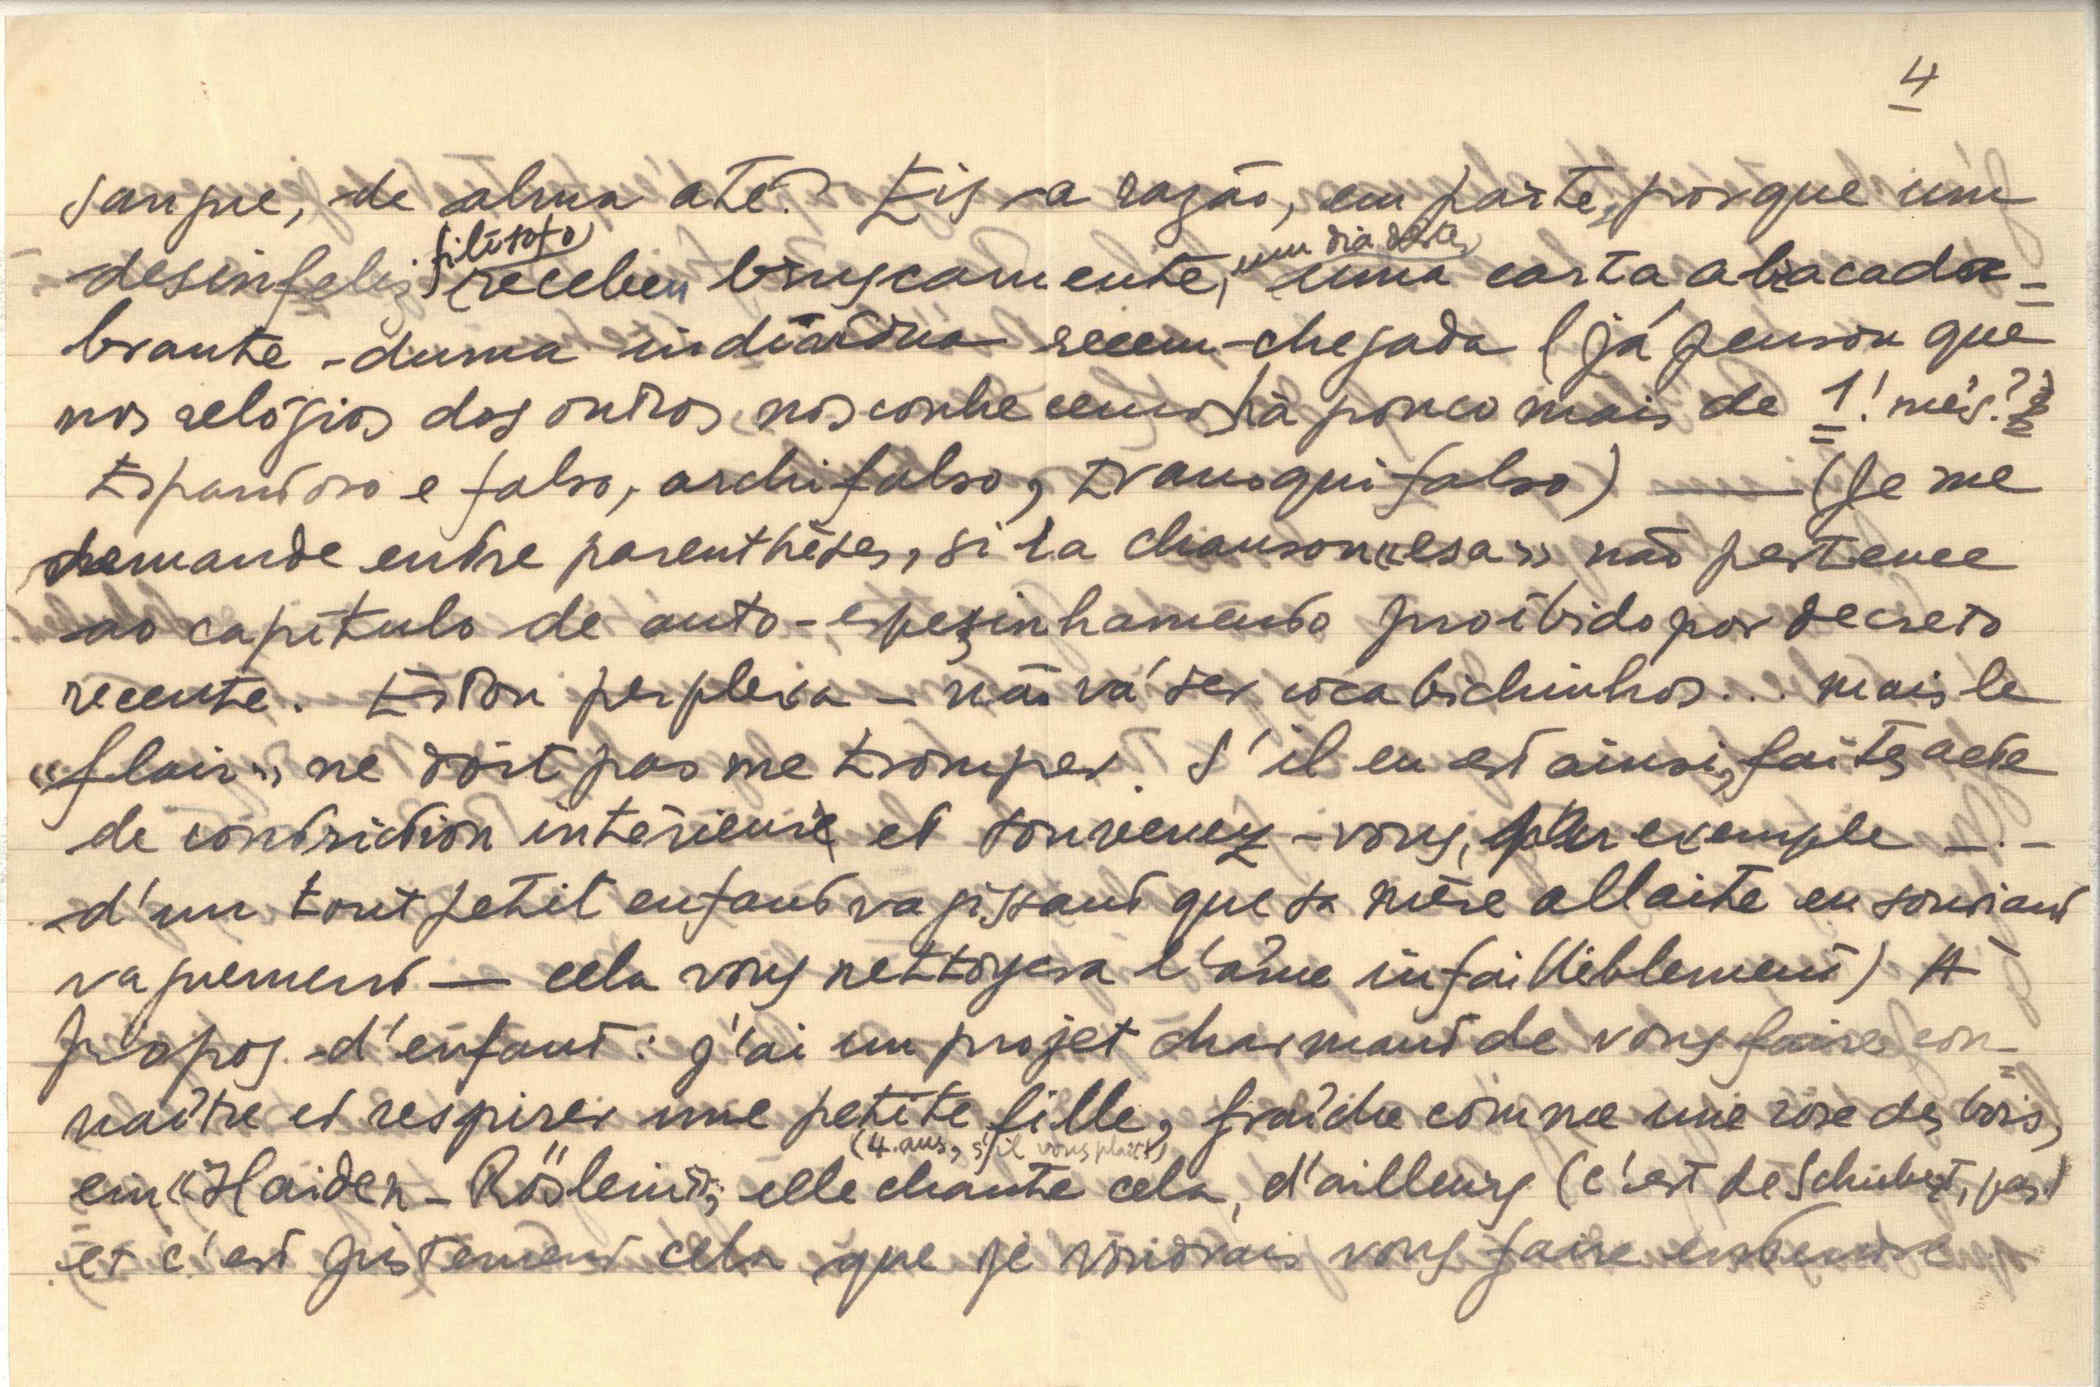 4
sangue, de alma até? Eis a razão, em parte, porque um
desinfeliz filósofo recebeu bruscamente, um dia destes, uma carta abracada-
brante duma indiana recem-chegada (já pensou que
nos relógios dos outros nos conhecemos há pouco mais de 1! mês!?
Espantoso e falso, archifalso, tranquifalso) — (Je me
demande entre parenthèses, si la chanson «esa» não pertence
ao capítulo de auto-espezinhamento proíbido por decreto
recente. Estou perplexa – não vá ser coca bichinhos... mais le
«flair» ne doit pas me tromper. S'il en est ainsi, faites acte
de contriction intérieure et souvenez-vous, par exemple -.-
d'un tout petit enfant vagissant que sa mère allaite en souriant
vaguement — cela vous nettoyera l'âme infailliblement) A
propos d'enfant: j'ai un projet charmant de vous faire con-
naître et respirer une petite fille, fraîche comme une rose des bois,
(4 ans, s'il vous plaît)
ein «Haiden-Röslein»; elle chante cela, d'ailleurs (c'est de Schubert, pas)
et c'est justement cela que je voudrais vous faire entendre